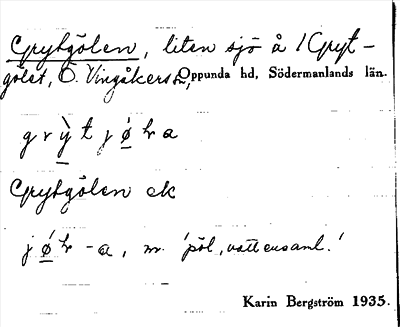 Grytgölen, liten sjö å 1 Gryt-
gölet, Ö. Vingåkers sn, Oppunda hd, Södermanlands län.
Grytgölen ek
m. 'pöl, vattensaml.'
Karin Bergström 1935.